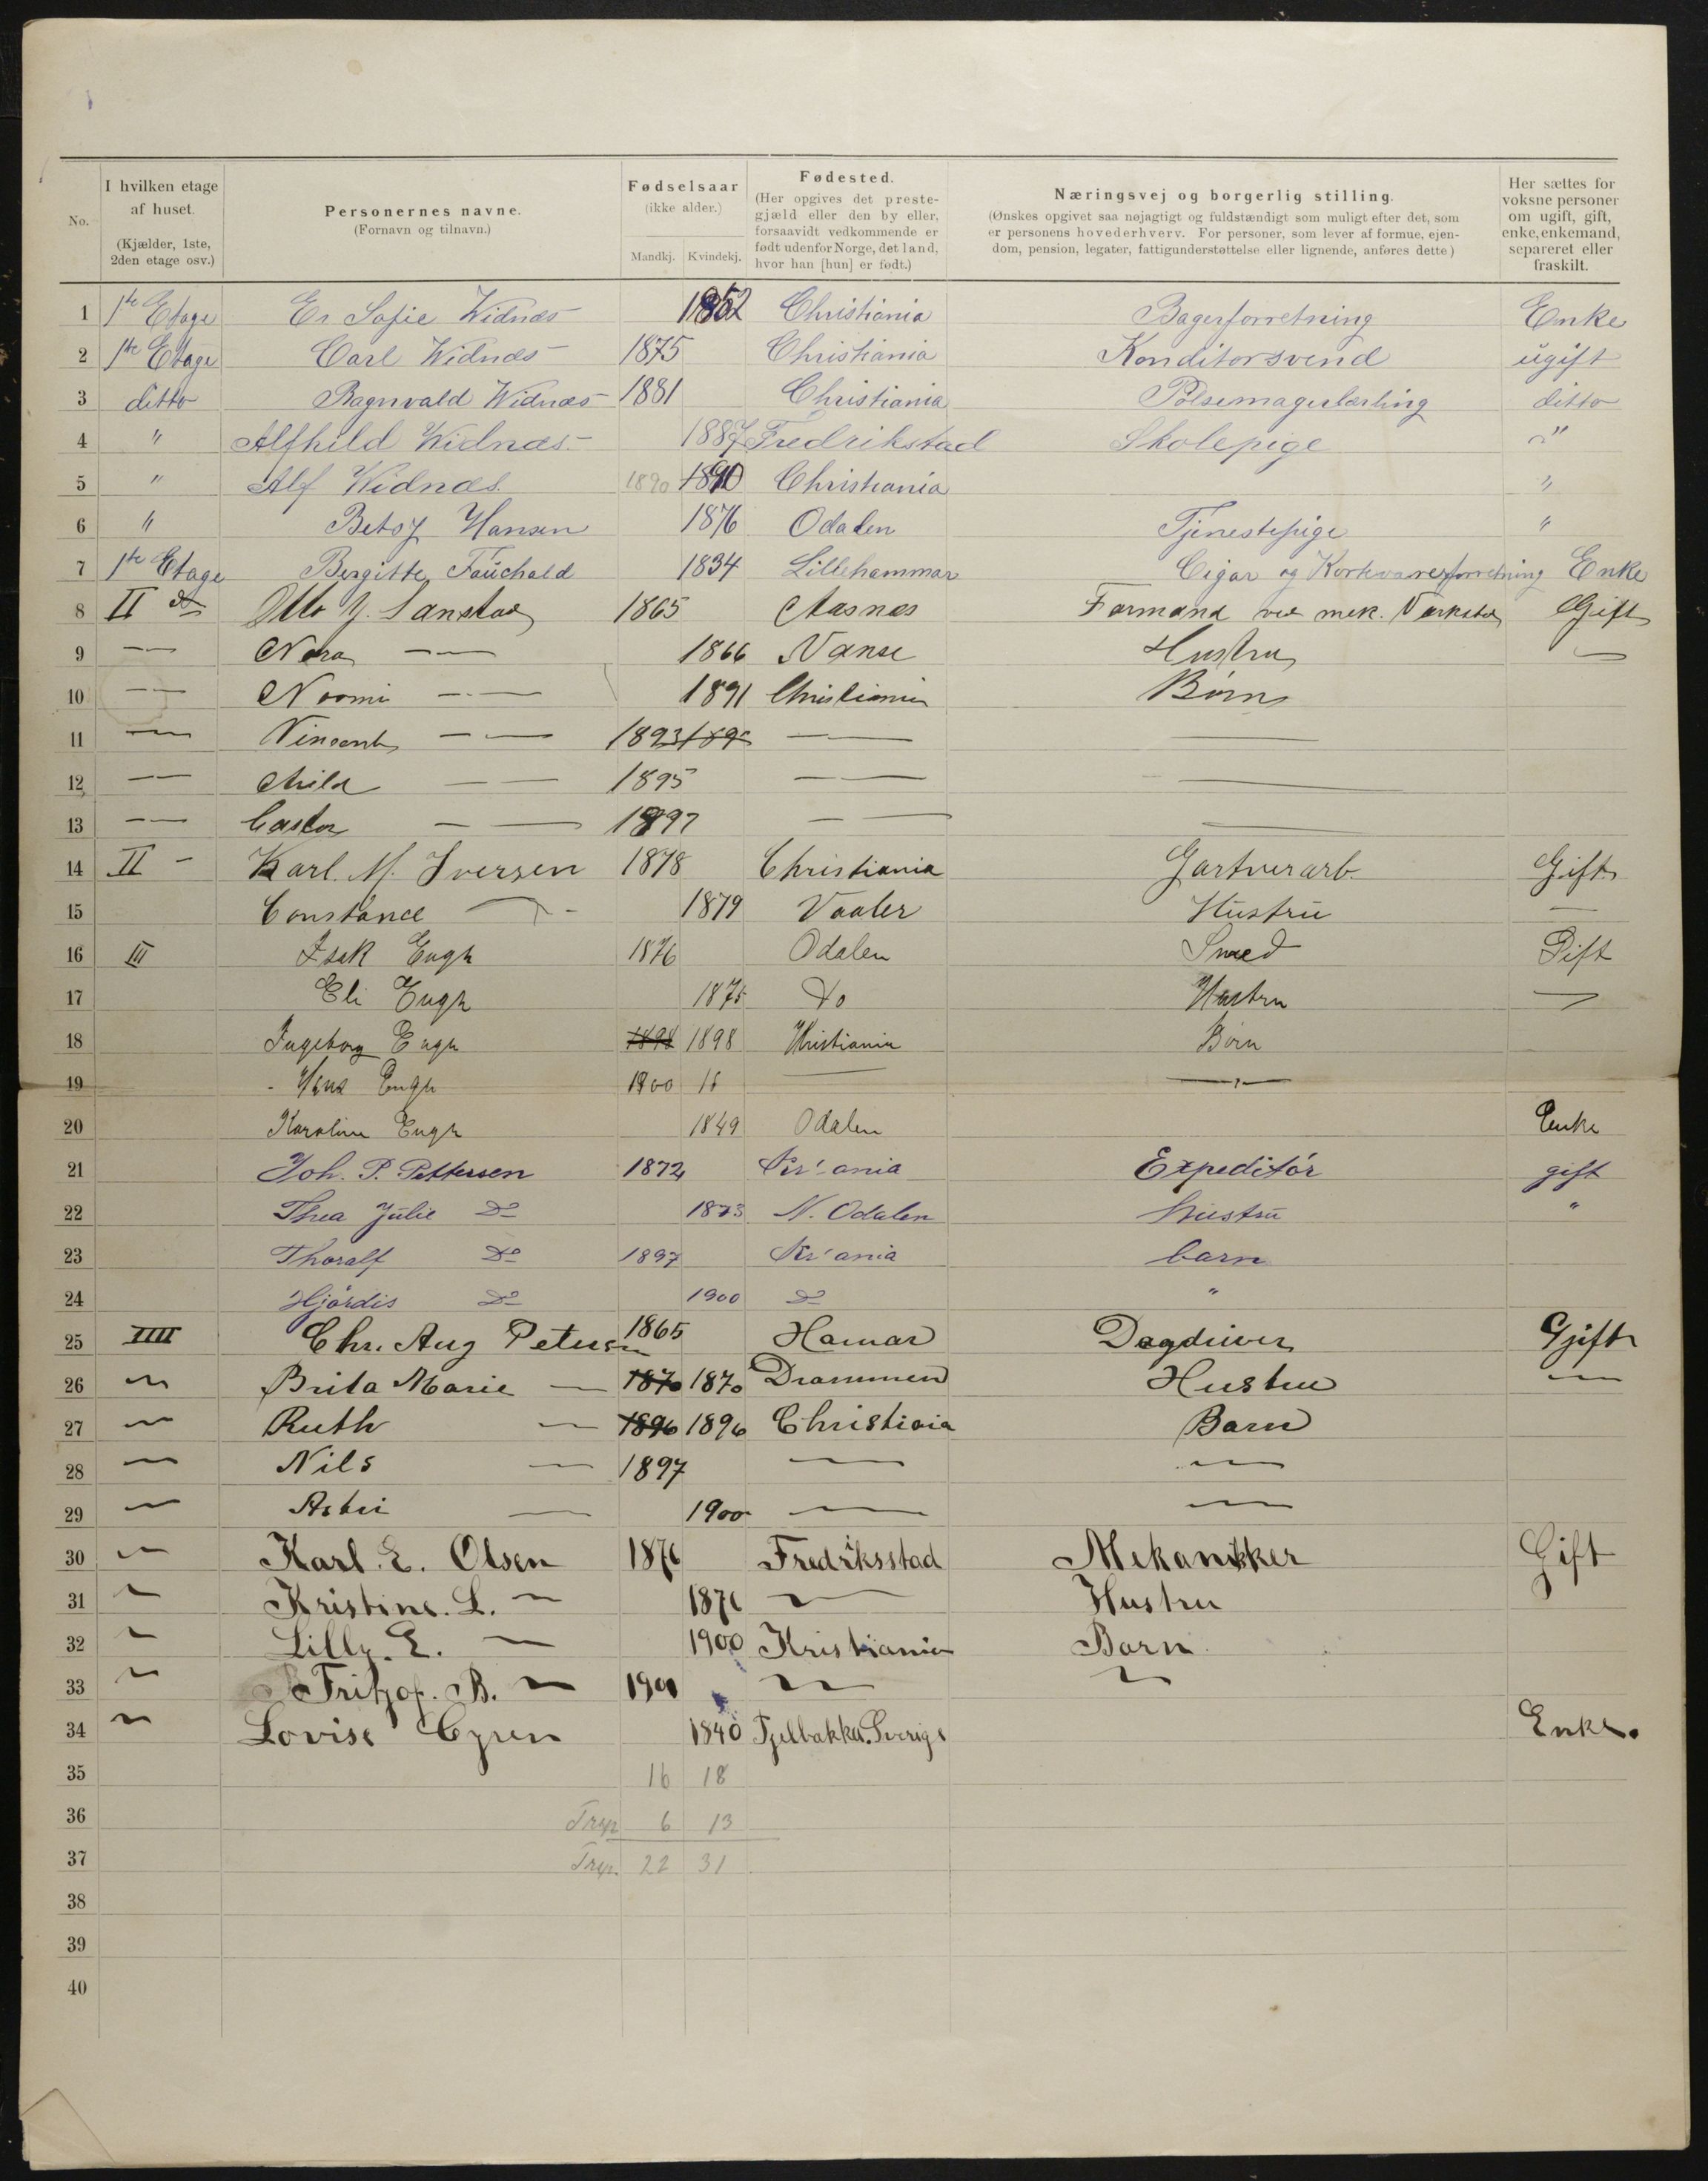 No. | I hvilken etage af huset. (Kjælder, 1ste, 2den etage osv.) | Personernes navne. (Fornavn og tilnavn.) | Fødselsaar (ikke alder.) Mandkj. Kvindekj. | Fødested. (Her opgives det prestegjæld eller den by eller, forsaavidt vedkommende er født udenfor Norge, det land, hvor han [hun] er født.) | Næringsvej og borgerlig stilling. (Ønskes opgivet saa nøjagtigt og fuldstændigt som muligt efter det, som er personens hovederhverv. For personer, som lever af formue, ejendom, pension, legater, fattigunderstøttelse eller lignende, anføres dette) | Her sættes for voksne personer om ugift, gift, enke, enkemand, separeret eller fraskilt.
1 1ste Etage Er. Sofie Widnæs 1852 Christiania Bagerforretning Enke
2 1ste Etage Carl Widnæs 1875 Christiania Konditorsvend ugift
3 ditto Ragnvald Widnæs 1881 Christiania Pølsemagerlærling ditto
4 " Alfhild Widnæs 1887 Fredrikstad Skolepige "
5 " Alf Widnæs 1890 1890 Christiania "
6 " Betsy Hansen 1876 Odalen Tjenestepige "
7 1ste Etage Bergitte Fauchald 1834 Lillehammar Cigar og Kortevareforretning Enke
8 II Otto 1865 Aasnæs Formand ved mek. Værksted Gift
9 — Nora — 1866 Vanse Hustru —
10 — Noomi — 1891 Christiania Børn
11 — Vincent — 1893 — —
12 — — 1895 — —
13 — Castor — 1897 — —
14 II - Karl. M. Iversen 1878 Christiania Gartnerarb. Gift
15 Constance — 1879 Vaaler Hustru —
16 III Isak Engh 1876 Odalen Smed Gift
17 Eli Engh 1875 Do Hustru —
18 Ingeborg Engh 1898 1898 Kristiania Børn
19 Hans Engh 1900 — —
20 Karoline Engh 1849 Odalen Enke
21 Joh. P. Pettersen 1872 Kr'ania Expeditør gift
22 Thea Julie Do 1873 N. Odalen hustru "
23 Thoralf Do 1897 Kr'ania barn
24 Hjørdis Do 1900 Do "
25 IIII Chr. Aug Petersen 1865 Hamar Dagdriver Gjift
26 — Brita Marie — 1870 1870 Drammen Hustru —
27 — Ruth — 1896 1896 Christiania Barn
28 — Nils — 1897 — —
29 — Astri — 1900 — —
30 — Karl. E. Olsen 1876 Fredriksstad Mekanikker Gift
31 — Kristine. L. — 1876 — Hustru
32 — Lilly. E. — 1900 Kristiania Barn
33 — Fritjof. B. — 1900 — —
34 — Lovise Cyren 1840 Fjelbakka. Sverige Enke.
35 16 18
36 6 13
37 22 31
38
39
40